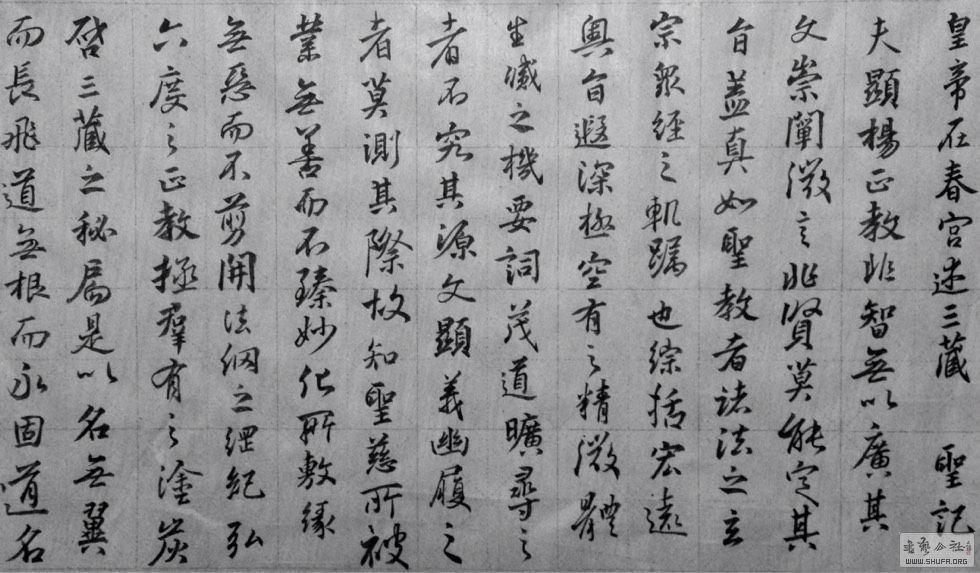 皇帝在春宮述三藏 聖記
夫顯揚正教非智無以廣其
文崇闡微言非賢莫能定其
旨蓋真如聖教者諸法之玄
宗衆經之軌躅也綜括宏遠
奧旨遐深極空有之精微體
生滅之機要詞茂道曠尋之
者不究其源文顯義幽履之
者莫測其際故知聖慈所被
業無善而不臻妙化所敷緣
無惡而不剪開法網之綱紀弘
六度之正教拯羣有之塗炭
啓三藏之秘扃是以名無翼
而長飛道無根而永固道名
書藝公社
WWW.SHUFA.ORG